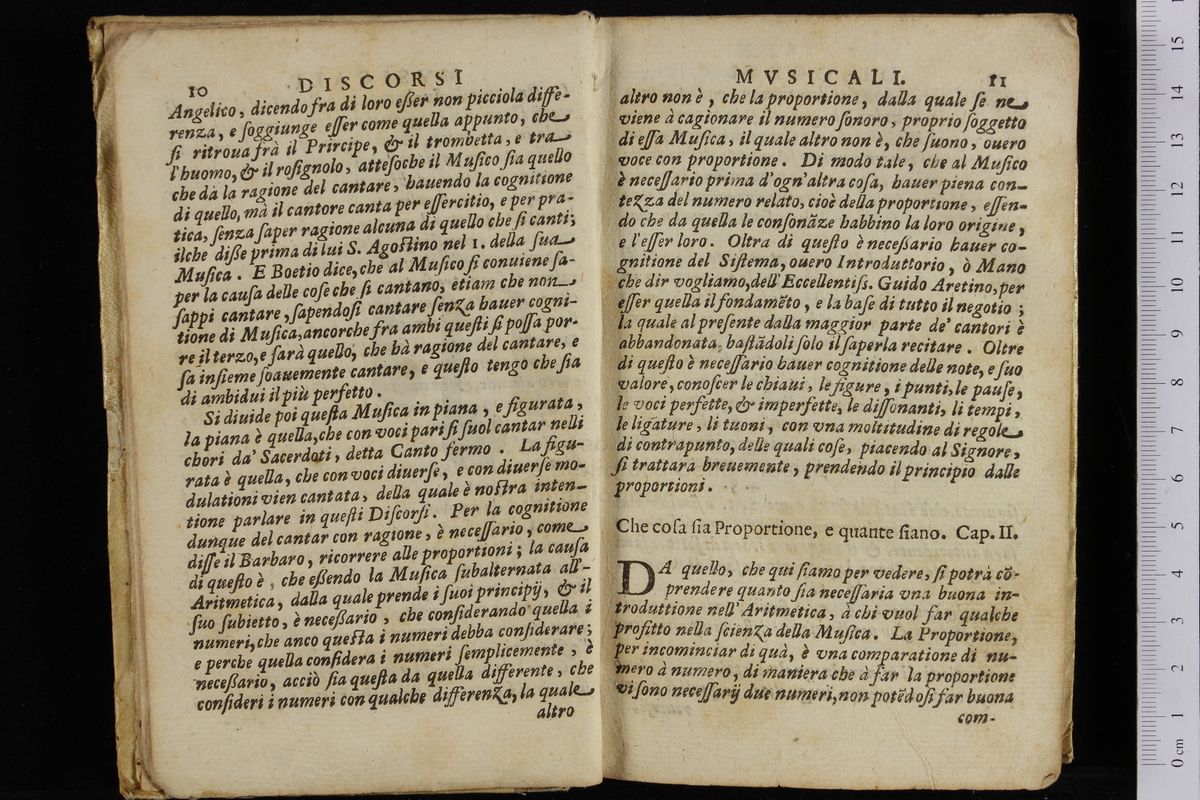 10 DISCORSI
Angelico, dicendo fra di loro eßer non picciola diffe-
renza, e ſoggiunge eſſer come quella appunto, che
ſi ritroua frà il Principe, & il trombetta, e tra
l'huomo, & il roſignolo, atteſoche il Muſico ſia quello
che dà la ragione del cantare, hauendo la cognitione
di quello, mà il cantore canta per eſſercitio, e per pra-
tica, ſenza ſaper ragione alcuna di quello che ſi canti;
ilche diße prima di lui S. Agoſtino nel 1. della ſua
Muſica. E Boetio dice, che al Muſico ſi conuiene ſa-
per la cauſa delle coſe che ſi cantano, etiam che non
ſappi cantare, ſapendoſi cantare ſenza hauer cogni-
tione di Muſica, ancorche fra ambi queſti ſi poſſa por-
re il terzo, e ſarà quello, che hà ragione del cantare, e
ſa inſieme ſoauemente cantare, e queſto tengo che ſia
di ambidui il più perfetto.
Si diuide poi queſta Muſica in piana, e figurata,
la piana è quella, che con voci pari ſi ſuol cantar nelli
chori da' Sacerdoti, detta Canto fermo. La figu-
rata è quella, che con voci diuerſe, e con diuerſe mo-
dulationi vien cantata, della quale è noſtra inten-
tione parlare in queſti Diſcorſi. Per la cognitione
dunque del cantar con ragione, è neceſſario, come
diſſe il Barbaro, ricorrere alle proportioni; la cauſa
di queſto è, che eßendo la Muſica ſubalternata all'-
Aritmetica, dalla quale prende i ſuoi principij, & il
ſuo ſubietto, è neceßario, che conſiderando quella i
numeri, che anco queſta i numeri debba conſiderare;
e perche quella conſidera i numeri ſemplicemente, è
neceßario, acciò ſia queſta da quella differente, che
conſideri i numeri con qualche differenza, la quale
altro
MVSICALI. 11
altro non è, che la proportione, dalla quale ſe ne
viene à cagionare il numero ſonoro, proprio ſoggetto
di eſſa Muſica, il quale altro non è, che ſuono, ouero
voce con proportione. Di modo tale, che al Muſico
è neceſſario prima d'ogn'altra coſa, hauer piena con-
tezza del numero relato, cioè della proportione, eſſen-
do che da quella le conſonãze habbino la loro origine,
e l'eſſer loro. Oltra di queſto è neceßario hauer co-
gnitione del Siſtema, ouero Introduttorio, ò Mano
che dir vogliamo, dell'Eccellentiſs. Guido Aretino, per
eſſer quella il fondamẽto, e la baſe di tutto il negotio;
la quale al preſente dalla maggior parte de' cantori è
abbandonata, baſtãdoli ſolo il ſaperla recitare. Oltre
di queſto è neceſſario hauer cognitione delle note, e ſuo
valore, conoſcer le chiaui, le figure, i punti, le pauſe,
le voci perfette, & imperfette, le diſſonanti, li tempi,
le ligature, li tuoni, con vna moltitudine di regole
di contrapunto, delle quali coſe, piacendo al Signore,
ſi trattarà breuemente, prendendo il principio dalle
proportioni.
Che coſa ſia Proportione, e quante ſiano. Cap. II.
DA quello, che qui ſiamo per vedere, ſi potrà cõ-
prendere quanto ſia neceſſaria vna buona in-
troduttione nell'Aritmetica, à chi vuol far qualche
profitto nella ſcienza della Muſica. La Proportione,
per incominciar di quà, è vna comparatione di nu-
mero à numero, di maniera che à far la proportione
vi ſono neceſſarij due numeri, non potẽdoſi far buona
com-
0 cm 1 2 3 4 5 6 7 8 9 10 11 12 13 14 15